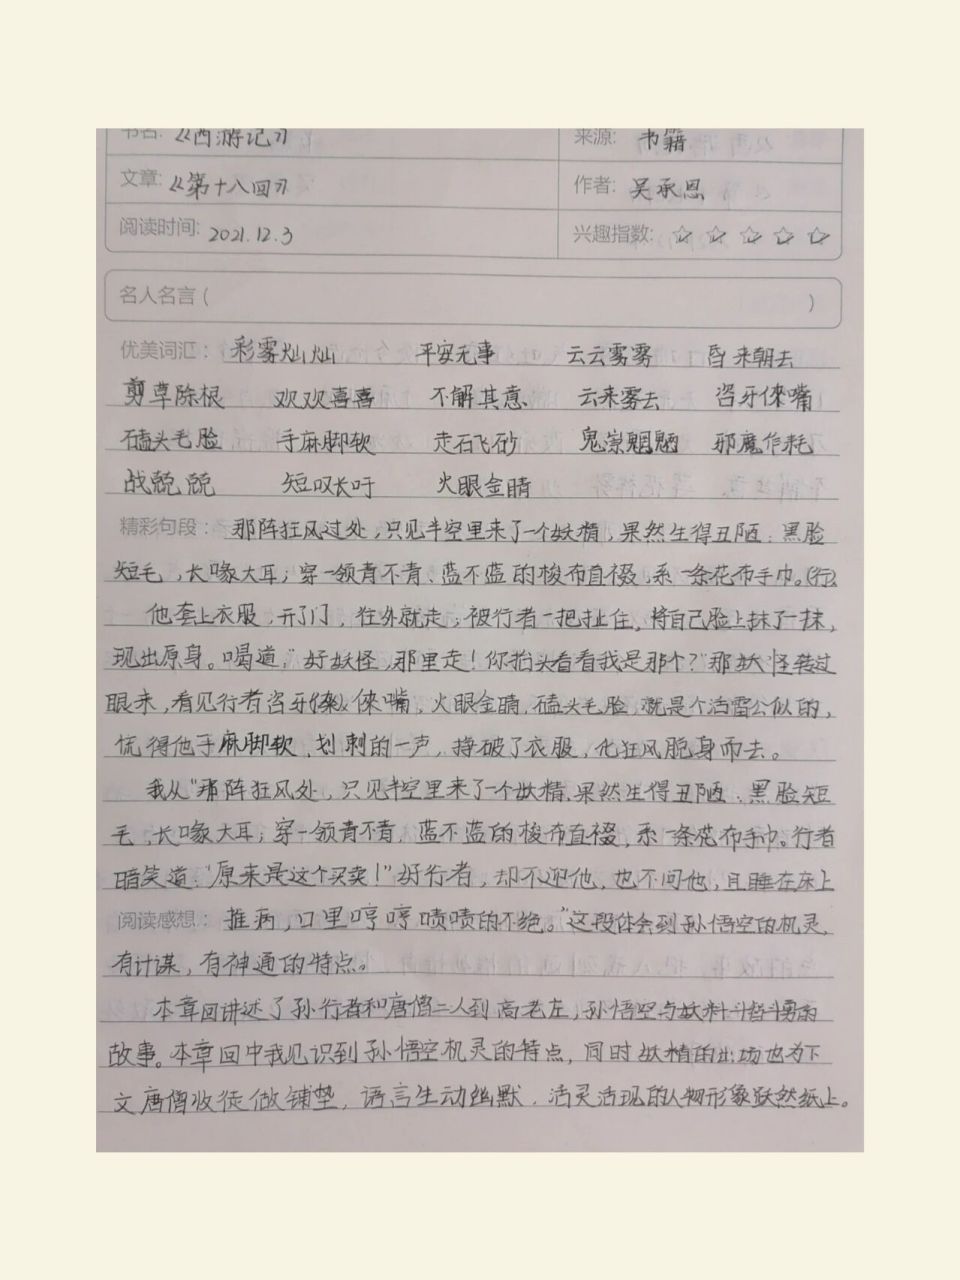 书名: 《西游记》 来源: 书籍
文章: 《第十八回》 作者: 吴承恩
阅读时间: 2021.12.3 兴趣指数: ☆ ☆ ☆ ☆ ☆
名人名言 ( )
优美词汇: 彩雾灿灿 平安无事 云云雾雾 昏来朝去
剪草除根 欢欢喜喜 不解其意 云来雾去 咨牙倈嘴
磕头毛脸 手麻脚软 走石飞砂 鬼崇魍魉 邪魔作耗
战兢兢 短叹长吁 火眼金睛
精彩句段: 那阵狂风过处,只见半空里来了一个妖精,果然生得丑陋:黑脸
短毛,长喙大耳;穿一领青不青、蓝不蓝的梭布直裰,系一条花布手巾。
他套上衣服,开了门,往外就走;被行者一把扯住,将自己脸上抹了一抹,
现出原身。喝道:"好妖怪,那里走!你抬头看看我是那个?"那妖怪转过
眼来,看见行者咨牙倈嘴,火眼金睛,磕头毛脸,就是个活雷公似的,
慌得他手麻脚软,划剌的一声,挣破了衣服,化狂风脱身而去。
我从"那阵狂风处,只见半空里来了一个妖精,果然生得丑陋:黑脸短
毛,长喙大耳;穿一领青不青,蓝不蓝的梭布直裰,系一条花布手巾。行者
暗笑道:"原来是这个买卖!"好行者,却不迎他,也不问他,且睡在床上
阅读感想: 推病,口里哼哼啧啧的不绝。"这段体会到孙悟空的机灵,
有计谋,有神通的特点。
本章回讲述了孙行者和唐僧二人到高老庄,孙悟空与妖精斗智斗勇的
故事。本章回中我见识到孙悟空机灵的特点,同时妖精的出场也为下
文唐僧收徒做铺垫,语言生动幽默,活灵活现的人物形象跃然纸上。